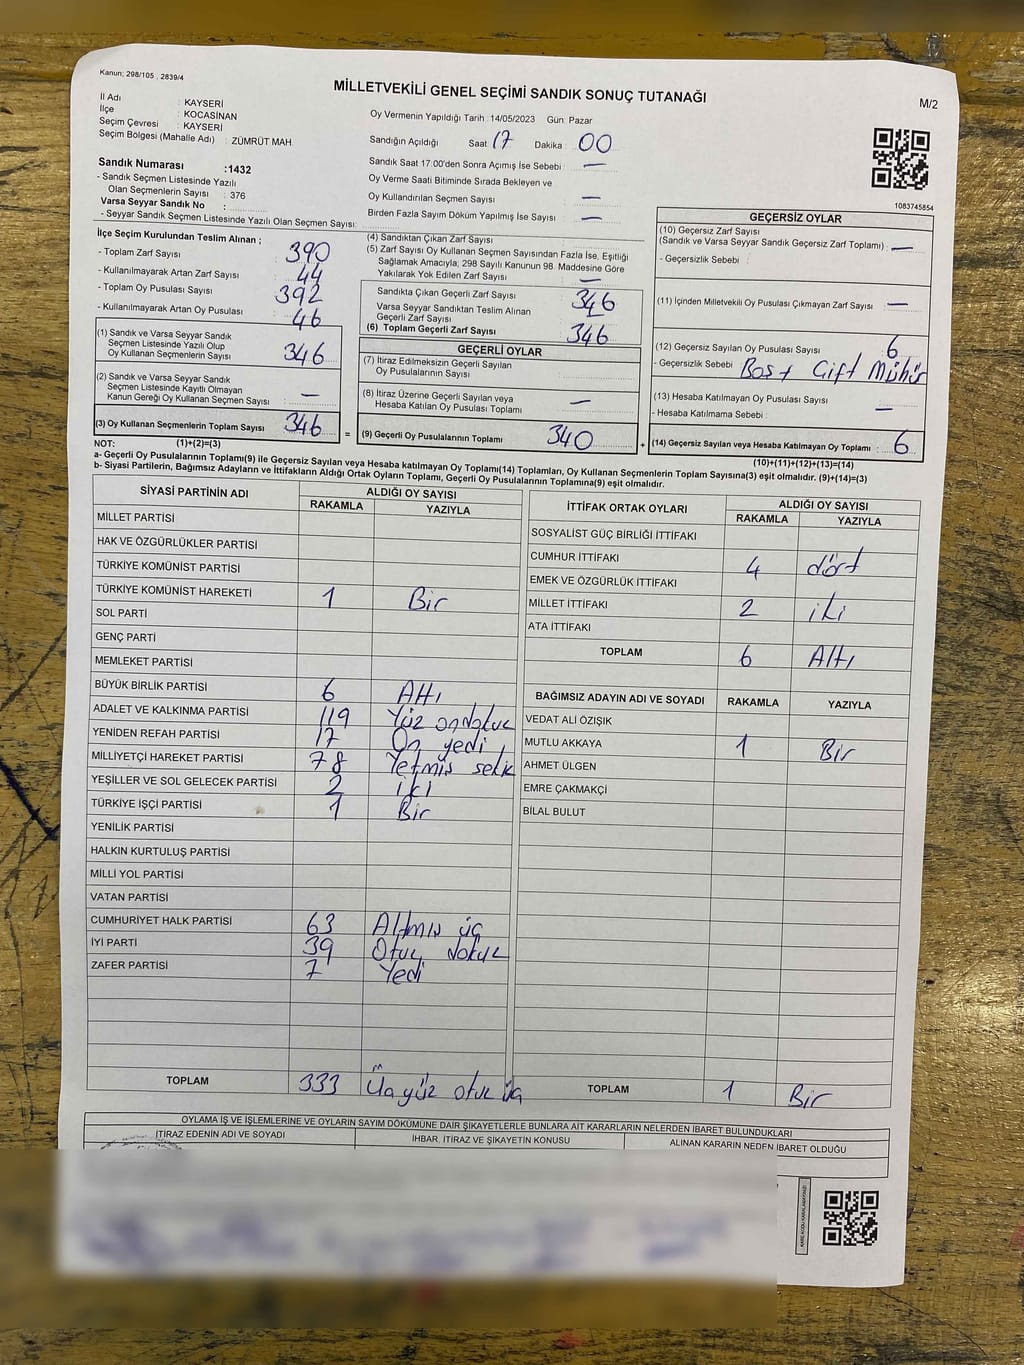 Kanun; 298/105 , 2839/4
MİLLETVEKİLİ GENEL SEÇİMİ SANDIK SONUÇ TUTANAĞI
M/2
İl Adı : KAYSERİ
İlçe : KOCASİNAN
Seçim Çevresi : KAYSERİ
Seçim Bölgesi (Mahalle Adı) : ZÜMRÜT MAH.
Sandık Numarası :1432
- Sandık Seçmen Listesinde Yazılı
Olan Seçmenlerin Sayısı : 376
Varsa Seyyar Sandık No :
- Seyyar Sandık Seçmen Listesinde Yazılı Olan Seçmen Sayısı:
Oy Vermenin Yapıldığı Tarih :14/05/2023 Gün: Pazar
Sandığın Açıldığı Saat : 17 Dakika : 00
Sandık Saat 17:00'den Sonra Açılmış İse Sebebi : —
Oy Verme Saati Bitiminde Sırada Bekleyen ve
Oy Kullandırılan Seçmen Sayısı : —
Birden Fazla Sayım Döküm Yapılmış İse Sayısı : —
1083745854
İlçe Seçim Kurulundan Teslim Alınan ;
- Toplam Zarf Sayısı : 390
- Kullanılmayarak Artan Zarf Sayısı : 44
- Toplam Oy Pusulası Sayısı : 392
- Kullanılmayarak Artan Oy Pusulası : 46
(1) Sandık ve Varsa Seyyar Sandık
Seçmen Listesinde Yazılı Olup
Oy Kullanan Seçmenlerin Sayısı : 346
(2) Sandık ve Varsa Seyyar Sandık
Seçmen Listesinde Kayıtlı Olmayan
Kanun Gereği Oy Kullanan Seçmen Sayısı : —
(3) Oy Kullanan Seçmenlerin Toplam Sayısı : 346
(4) Sandıktan Çıkan Zarf Sayısı :
(5) Zarf Sayısı Oy Kullanan Seçmen Sayısından Fazla İse, Eşitliği
Sağlamak Amacıyla; 298 Sayılı Kanunun 98. Maddesine Göre
Yakılarak Yok Edilen Zarf Sayısı : —
Sandıkta Çıkan Geçerli Zarf Sayısı : 346
Varsa Seyyar Sandıktan Teslim Alınan
Geçerli Zarf Sayısı :
(6) Toplam Geçerli Zarf Sayısı : 346
GEÇERLİ OYLAR
(7) İtiraz Edilmeksizin Geçerli Sayılan
Oy Pusulalarının Sayısı :
(8) İtiraz Üzerine Geçerli Sayılan veya
Hesaba Katılan Oy Pusulası Toplamı : —
= (9) Geçerli Oy Pusulalarının Toplamı : 340 +
GEÇERSİZ OYLAR
(10) Geçersiz Zarf Sayısı
(Sandık ve Varsa Seyyar Sandık Geçersiz Zarf Toplamı) : —
- Geçersizlik Sebebi :
(11) İçinden Milletvekili Oy Pusulası Çıkmayan Zarf Sayısı : —
(12) Geçersiz Sayılan Oy Pusulası Sayısı : 6
- Geçersizlik Sebebi : Boş + Çift Mühür
(13) Hesaba Katılmayan Oy Pusulası Sayısı : —
- Hesaba Katılmama Sebebi :
(14) Geçersiz Sayılan veya Hesaba Katılmayan Oy Toplamı : 6
NOT: (1)+(2)=(3)
(10)+(11)+(12)+(13)=(14)
a- Geçerli Oy Pusulalarının Toplamı(9) ile Geçersiz Sayılan veya Hesaba katılmayan Oy Toplamı(14) Toplamları, Oy Kullanan Seçmenlerin Toplam Sayısına(3) eşit olmalıdır. (9)+(14)=(3)
b- Siyasi Partilerin, Bağımsız Adayların ve İttifakların Aldığı Ortak Oyların Toplamı, Geçerli Oy Pusulalarının Toplamına(9) eşit olmalıdır.
SİYASİ PARTİNİN ADI ALDIĞI OY SAYISI
RAKAMLA YAZIYLA
MİLLET PARTİSİ
HAK VE ÖZGÜRLÜKLER PARTİSİ
TÜRKİYE KOMÜNİST PARTİSİ
TÜRKİYE KOMÜNİST HAREKETİ 1 Bir
SOL PARTİ
GENÇ PARTİ
MEMLEKET PARTİSİ
BÜYÜK BİRLİK PARTİSİ 6 Altı
ADALET VE KALKINMA PARTİSİ 119 Yüz ondokuz
YENİDEN REFAH PARTİSİ 17 On yedi
MİLLİYETÇİ HAREKET PARTİSİ 78 Yetmiş sekiz
YEŞİLLER VE SOL GELECEK PARTİSİ 2 iki
TÜRKİYE İŞÇİ PARTİSİ 1 Bir
YENİLİK PARTİSİ
HALKIN KURTULUŞ PARTİSİ
MİLLİ YOL PARTİSİ
VATAN PARTİSİ
CUMHURİYET HALK PARTİSİ 63 Altmış üç
İYİ PARTİ 39 Otuz dokuz
ZAFER PARTİSİ 7 Yedi
TOPLAM 333 Üçyüz otuz üç
İTTİFAK ORTAK OYLARI ALDIĞI OY SAYISI
RAKAMLA YAZIYLA
SOSYALİST GÜÇ BİRLİĞİ İTTİFAKI
CUMHUR İTTİFAKI 4 dört
EMEK VE ÖZGÜRLÜK İTTİFAKI
MİLLET İTTİFAKI 2 iki
ATA İTTİFAKI
TOPLAM 6 Altı
BAĞIMSIZ ADAYIN ADI VE SOYADI RAKAMLA YAZIYLA
VEDAT ALİ ÖZIŞIK
MUTLU AKKAYA 1 Bir
AHMET ÜLGEN
EMRE ÇAKMAKÇİ
BİLAL BULUT
TOPLAM 1 Bir
OYLAMA İŞ VE İŞLEMLERİNE VE OYLARIN SAYIM DÖKÜMÜNE DAİR ŞİKAYETLERLE BUNLARA AİT KARARLARIN NELERDEN İBARET BULUNDUKLARI
İTİRAZ EDENİN ADI VE SOYADI İHBAR, İTİRAZ VE ŞİKAYETİN KONUSU ALINAN KARARIN NEDEN İBARET OLDUĞU